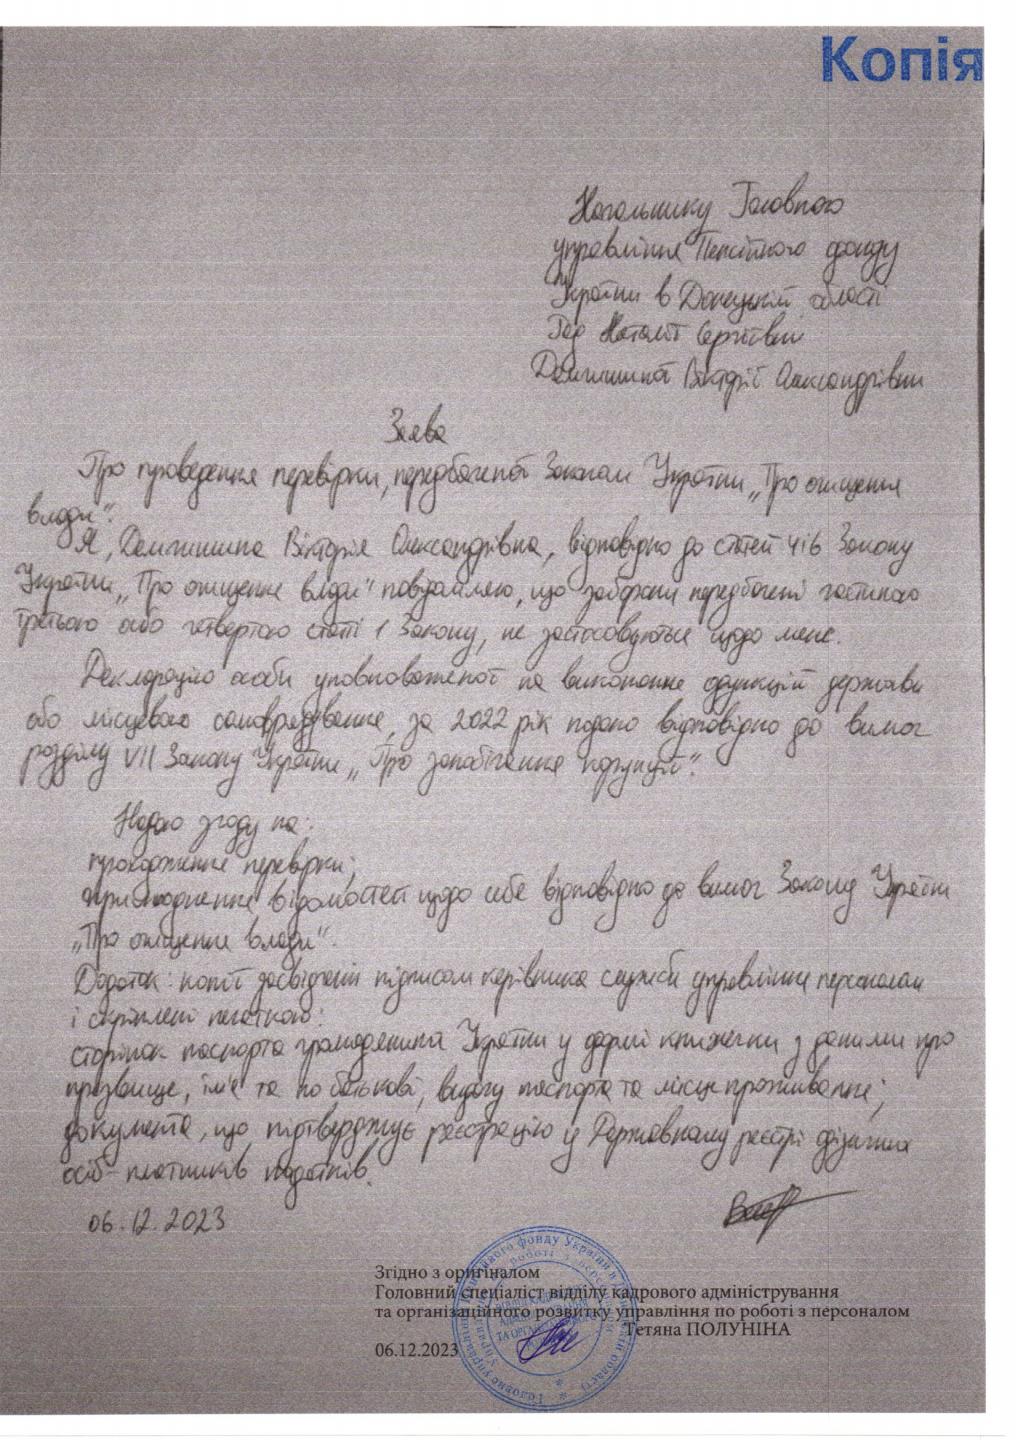 Копія
Начальнику Головного
управління Пенсійного фонду
України в Донецькій області
Рер Наталії Сергіївні
Вікторії Олександрівни
Заява
Про проведення перевірки, передбаченої Законом України „Про очищення
влади".
Я, Вікторія Олександрівна, відповідно до статей 4 і 6 Закону
України „Про очищення влади" повідомляю, що заборони передбачені частиною
третьою або четвертою статті 1 Закону, не застосовуються щодо мене.
Декларацію особи уповноваженої на виконання функцій держави
або місцевого самоврядування, за 2022 рік подано відповідно до вимог
розділу VII Закону України „Про запобігання корупції".
Надаю згоду на:
проходження перевірки;
оприлюднення відомостей щодо себе відповідно до вимог Закону України
„Про очищення влади".
Додаток: копії засвідчені підписом керівника служби управління персоналом
і скріплені печаткою:
сторінок паспорта громадянина України у формі книжечки з даними про
прізвище, ім'я та по батькові, видачу паспорта та місце проживання;
документа, що підтверджує реєстрацію у Державному реєстрі фізичних
осіб-платників податків.
06.12.2023
Згідно з оригіналом
Головний спеціаліст відділу кадрового адміністрування
та організаційного розвитку управління по роботі з персоналом
Тетяна ПОЛУНІНА
06.12.2023